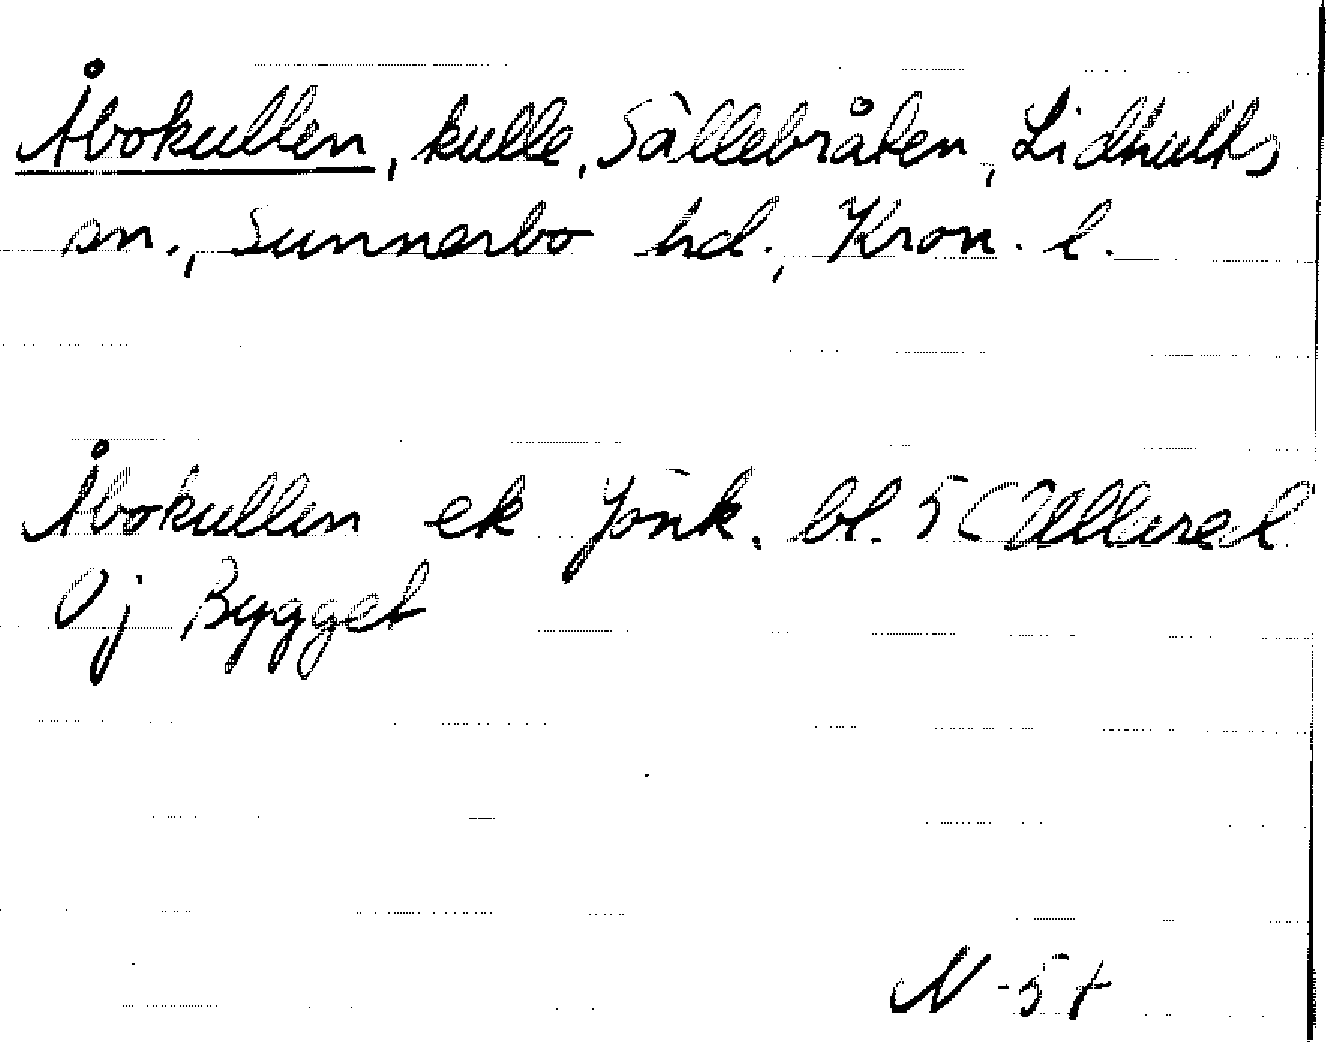 Åbokullen, kulle, Sällebråten, Lidhults
sn., Sunnerbo hd., Kron. l.
Åbokullen ek Jönk. bl. 5 (Ullared
Oj Bygget
N-57